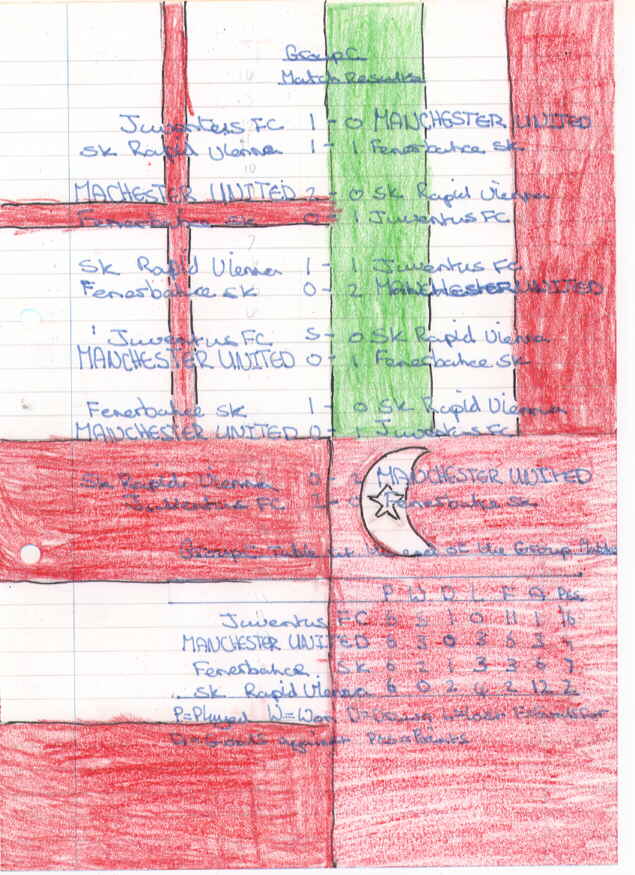 Group C
Match Results
Juventus FC 1 - 0 MANCHESTER UNITED
SK Rapid Vienna 1 - 1 Fenerbahce SK
MACHESTER UNITED 2 - 0 SK Rapid Vienna
Fenerbahce SK 0 - 1 Juventus FC
SK Rapid Vienna 1 - 1 Juventus FC
Fenerbahce SK 0 - 2 MANCHESTER UNITED
Juventus FC 5 - 0 SK Rapid Vienna
MANCHESTER UNITED 0 - 1 Fenerbahce SK
Fenerbahce SK 1 - 0 SK Rapid Vienna
MANCHESTER UNITED 0 - 1 Juventus FC
SK Rapid Vienna 0 - 2 MANCHESTER UNITED
Juventus FC 2 - 0 Fenerbahce SK
Group C Table at the end of the Group Table
P W D L F A Pts.
Juventus FC 6 5 1 0 11 1 16
MANCHESTER UNITED 6 3 0 3 6 3 9
Fenerbahce SK 6 2 1 3 3 6 7
SK Rapid Vienna 6 0 2 4 2 12 2
P=Played W=Won D=Drawn L=Lost F=Goals For
A=Goals Against Pts=Points